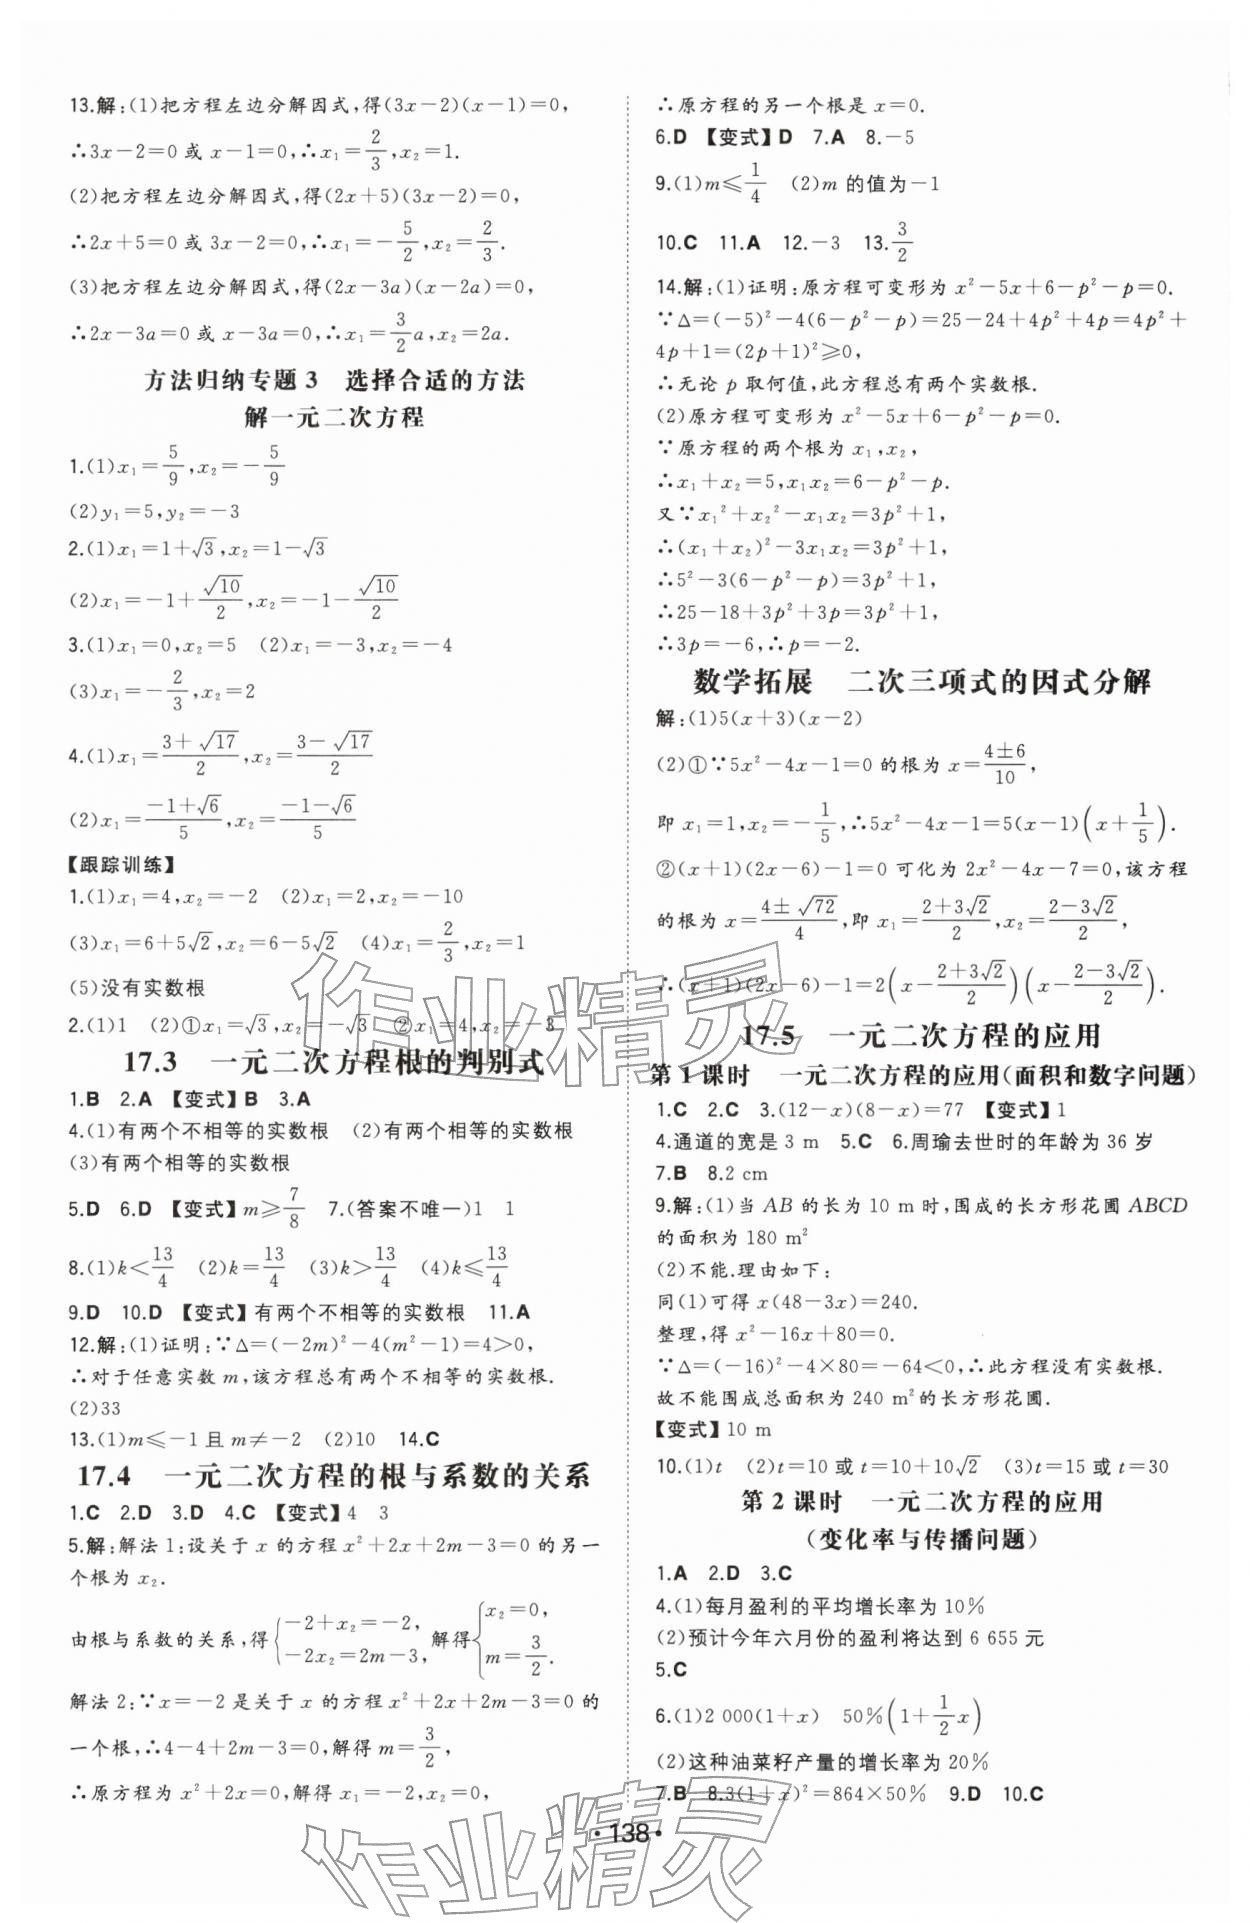 13.解:(1)把方程左边分解因式,得(3x-2)(x-1)=0,
∴3x-2=0 或 x-1=0,∴x₁=2/3,x₂=1.
(2)把方程左边分解因式,得(2x+5)(3x-2)=0,
∴2x+5=0 或 3x-2=0,∴x₁=-5/2,x₂=2/3.
(3)把方程左边分解因式,得(2x-3a)(x-2a)=0,
∴2x-3a=0 或 x-3a=0,∴x₁=3/2a,x₂=2a.
方法归纳专题 3 选择合适的方法
解一元二次方程
1.(1)x₁=5/9,x₂=-5/9
(2)y₁=5,y₂=-3
2.(1)x₁=1+√3,x₂=1-√3
(2)x₁=-1+√10/2,x₂=-1-√10/2
3.(1)x₁=0,x₂=5 (2)x₁=-3,x₂=-4
(3)x₁=-2/3,x₂=2
4.(1)x₁=(3+√17)/2,x₂=(3-√17)/2
(2)x₁=(-1+√6)/5,x₂=(-1-√6)/5
【跟踪训练】
1.(1)x₁=4,x₂=-2 (2)x₁=2,x₂=-10
(3)x₁=6+5√2,x₂=6-5√2 (4)x₁=2/3,x₂=1
(5)没有实数根
2.(1)1 (2)①x₁=√3,x₂=-√3 ②x₁=4,x₂=-3
17.3 一元二次方程根的判别式
1.B 2.A 【变式】B 3.A
4.(1)有两个不相等的实数根 (2)有两个相等的实数根
(3)有两个相等的实数根
5.D 6.D 【变式】m≥7/8 7.(答案不唯一)1 1
8.(1)k<13/4 (2)k=13/4 (3)k>13/4 (4)k≤13/4
9.D 10.D 【变式】有两个不相等的实数根 11.A
12.解:(1)证明:∵Δ=(-2m)²-4(m²-1)=4>0,
∴对于任意实数 m,该方程总有两个不相等的实数根.
(2)33
13.(1)m≤-1 且 m≠-2 (2)10 14.C
17.4 一元二次方程的根与系数的关系
1.C 2.D 3.D 4.C 【变式】4 3
5.解:解法 1:设关于 x 的方程 x²+2x+2m-3=0 的另一
个根为 x₂.
由根与系数的关系,得{-2+x₂=-2, -2x₂=2m-3, 解得{x₂=0, m=3/2.
解法 2:∵x=-2 是关于 x 的方程 x²+2x+2m-3=0 的
一个根,∴4-4+2m-3=0,解得 m=3/2,
∴原方程为 x²+2x=0,解得 x₁=-2,x₂=0,
∴原方程的另一个根是 x=0.
6.D 【变式】D 7.A 8.-5
9.(1)m≤1/4 (2)m 的值为-1
10.C 11.A 12.-3 13.3/2
14.解:(1)证明:原方程可变形为 x²-5x+6-p²-p=0.
∵Δ=(-5)²-4(6-p²-p)=25-24+4p²+4p=4p²+
4p+1=(2p+1)²≥0,
∴无论 p 取何值,此方程总有两个实数根.
(2)原方程可变形为 x²-5x+6-p²-p=0.
∵原方程的两个根为 x₁,x₂,
∴x₁+x₂=5,x₁x₂=6-p²-p.
又∵x₁²+x₂²-x₁x₂=3p²+1,
∴(x₁+x₂)²-3x₁x₂=3p²+1,
∴5²-3(6-p²-p)=3p²+1,
∴25-18+3p²+3p=3p²+1,
∴3p=-6,∴p=-2.
数学拓展 二次三项式的因式分解
解:(1)5(x+3)(x-2)
(2)①∵5x²-4x-1=0 的根为 x=(4±6)/10,
即 x₁=1,x₂=-1/5,∴5x²-4x-1=5(x-1)(x+1/5).
②(x+1)(2x-6)-1=0 可化为 2x²-4x-7=0,该方程
的根为 x=(4±√72)/4,即 x₁=(2+3√2)/2,x₂=(2-3√2)/2,
∴(x+1)(2x-6)-1=2(x-(2+3√2)/2)(x-(2-3√2)/2).
17.5 一元二次方程的应用
第 1 课时 一元二次方程的应用(面积和数字问题)
1.C 2.C 3.(12-x)(8-x)=77 【变式】1
4.通道的宽是 3 m 5.C 6.周瑜去世时的年龄为 36 岁
7.B 8.2 cm
9.解:(1)当 AB 的长为 10 m 时,围成的长方形花圃 ABCD
的面积为 180 m²
(2)不能.理由如下:
同(1)可得 x(48-3x)=240.
整理,得 x²-16x+80=0.
∵Δ=(-16)²-4×80=-64<0,∴此方程没有实数根.
故不能围成总面积为 240 m²的长方形花圃.
【变式】10 m
10.(1)t (2)t=10 或 t=10+10√2 (3)t=15 或 t=30
第 2 课时 一元二次方程的应用
(变化率与传播问题)
1.A 2.D 3.C
4.(1)每月盈利的平均增长率为 10%
(2)预计今年六月份的盈利将达到 6 655 元
5.C
6.(1)2 000(1+x) 50%(1+1/2x)
(2)这种油菜籽产量的增长率为 20%
7.B 8.3(1+x)²=864×50% 9.D 10.C
·138·
作业精灵
作业精灵